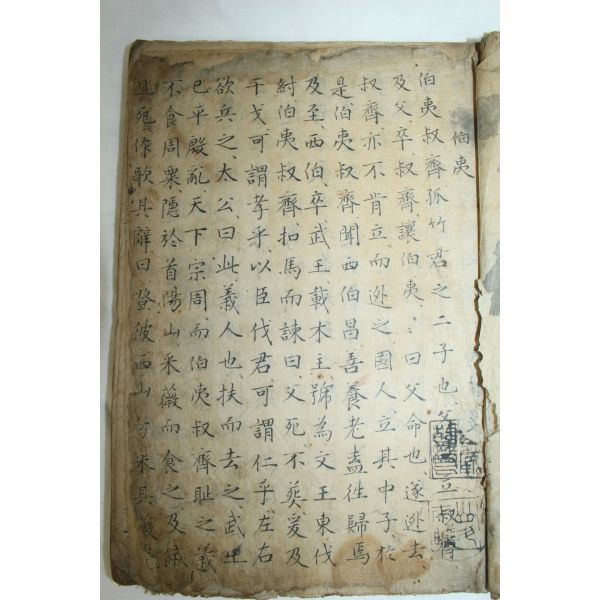 伯夷
伯夷叔齊孤竹君之二子也父立叔齊
及父卒叔齊讓伯夷〻曰父命也遂逃去
叔齊亦不肯立而逃之國人立其中子於
是伯夷叔齊聞西伯昌善養老盍徃歸焉
及至西伯卒武王載木主號為文王東伐
紂伯夷叔齊扣馬而諫曰父死不葬爰及
干戈可謂孝乎以臣伐君可謂仁乎左右
欲兵之太公曰此義人也扶而去之武王
已平殷亂天下宗周而伯夷叔齊耻之義
不食周粟隱於首陽山采薇而食之及餓
且死作歌其辭曰登彼西山兮采其薇